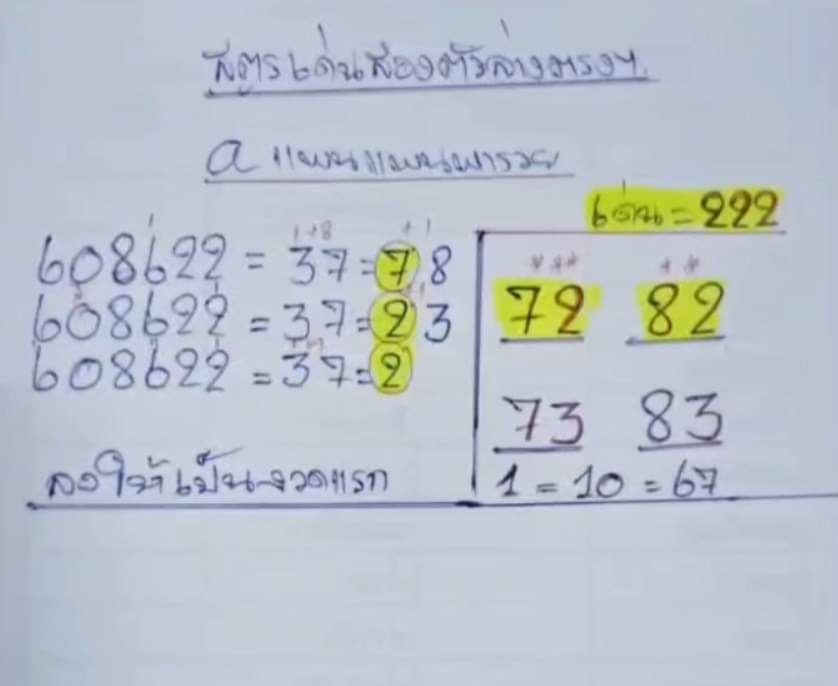 สูตรเด่นสองตัวล่างตรงๆ
a แพนแพนพารวย
เด่น = 222
1+8 +1
608622 = 37 = 7 8
608622 = 37 = 2 3
608622 = 37 = 2
*** **
72 82
73 83
1 = 10 = 67
ลงให้เป็นงวดแรก